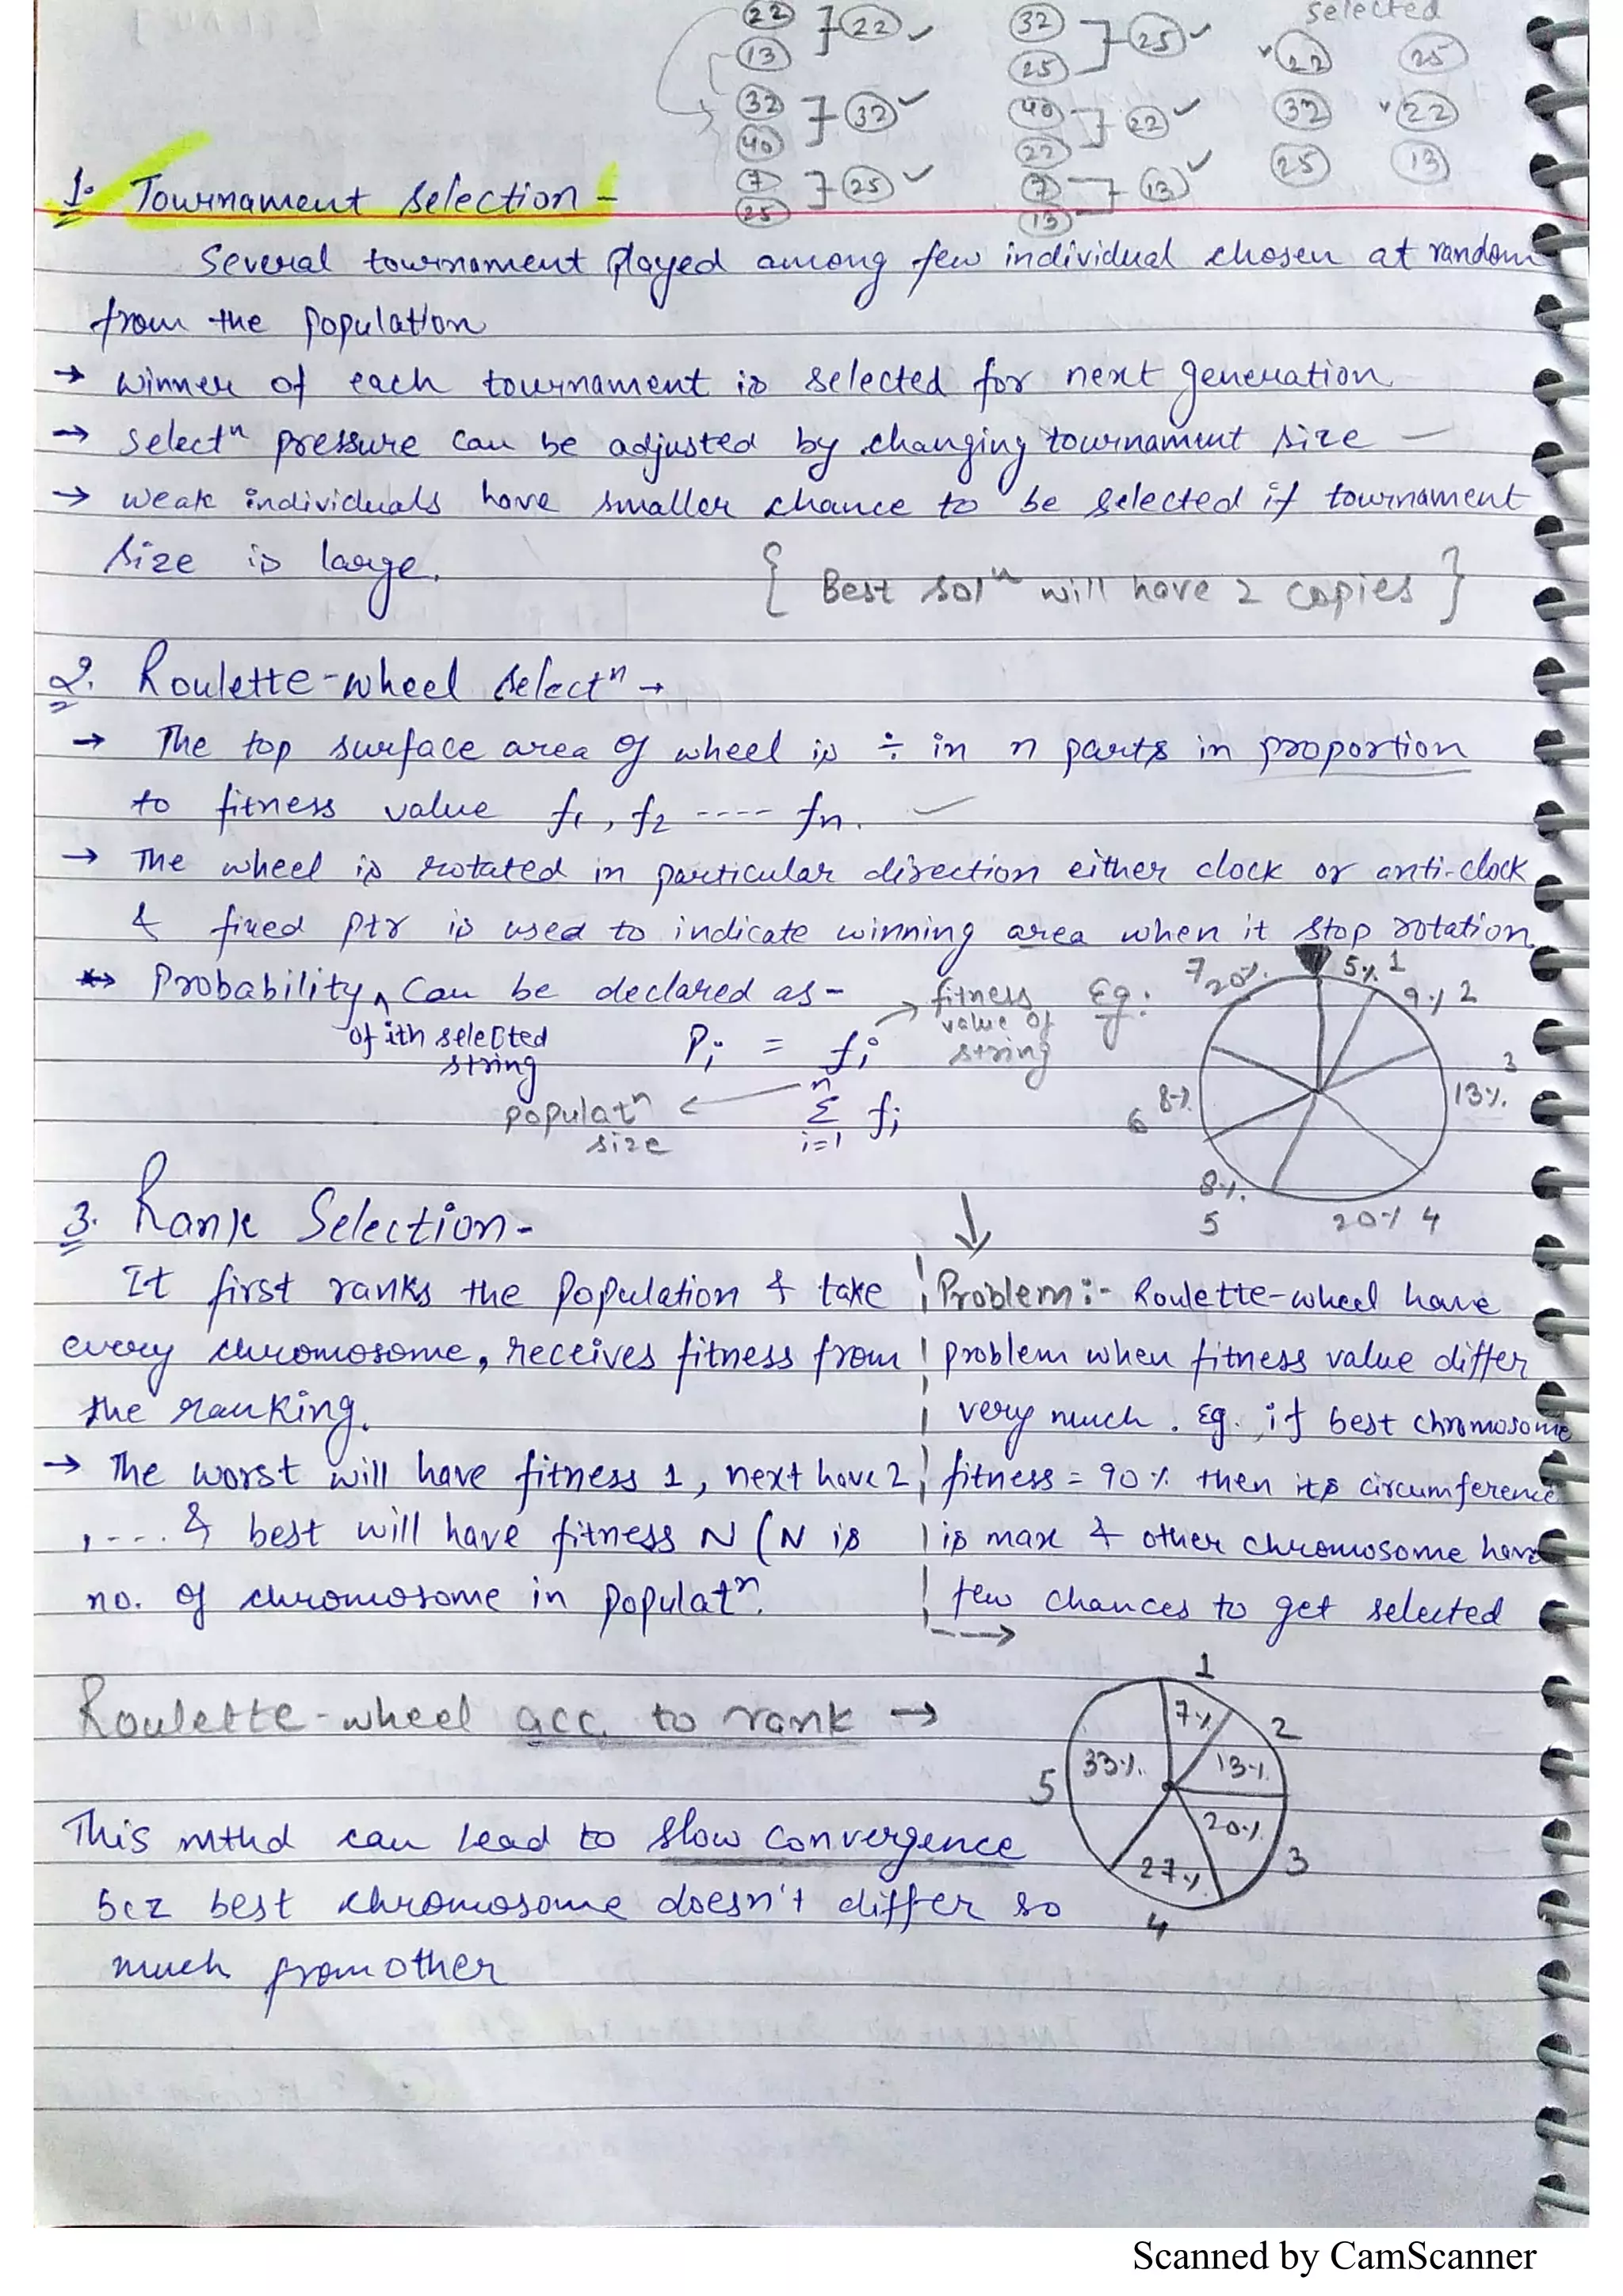 selected
22 } 22 ✓ 32 } 25 ✓ ✓22 25
13 25
32 } 32 ✓ 40 } 22 ✓ 32 ✓22
40 22
7 } 25 ✓ 7 } 13 ✓ 25 13
25 13
1. Tournament selection -
Several tournament played among few individual chosen at random
from the population
→ winner of each tournament is selected for next generation
→ Selectⁿ pressure can be adjusted by changing tournament size —
→ weak individuals have smaller chance to be selected if tournament
size is large.
{ Best solⁿ will have 2 copies }
2. Roulette-wheel selectⁿ →
→ The top surface area of wheel is ÷ in n parts in proportion
to fitness value f1, f2 ---- fn.
→ The wheel is rotated in particular direction either clock or anti-clock
& fixed ptr is used to indicate winning area when it stop rotation
→ Probability ^ can be declared as - → fitness Eg.
of ith selected value of
string string
Pi = fi
n
Σ fi
i=1
populatⁿ
size
7 20%. 5% 1
9% 2
3
13%.
8% 6
8%. 5
20% 4
3. Rank Selection -
It first ranks the population & take
every chromosome, receives fitness from
the ranking.
→ The worst will have fitness 1, next have 2
, ---. & best will have fitness N (N is
no. of chromosome in populatⁿ.
Problem:- Roulette-wheel have
problem when fitness value differ
very much. Eg., if best chromosome
fitness = 90% then its circumference
is max & other chromosome have
few chances to get selected
Roulette-wheel acc. to rank →
1
7% 2
33%. 13%.
5
20%. 3
27%.
4
This mthd can lead to slow convergence
bcz best chromosome doesn't differ so
much from other
Scanned by CamScanner